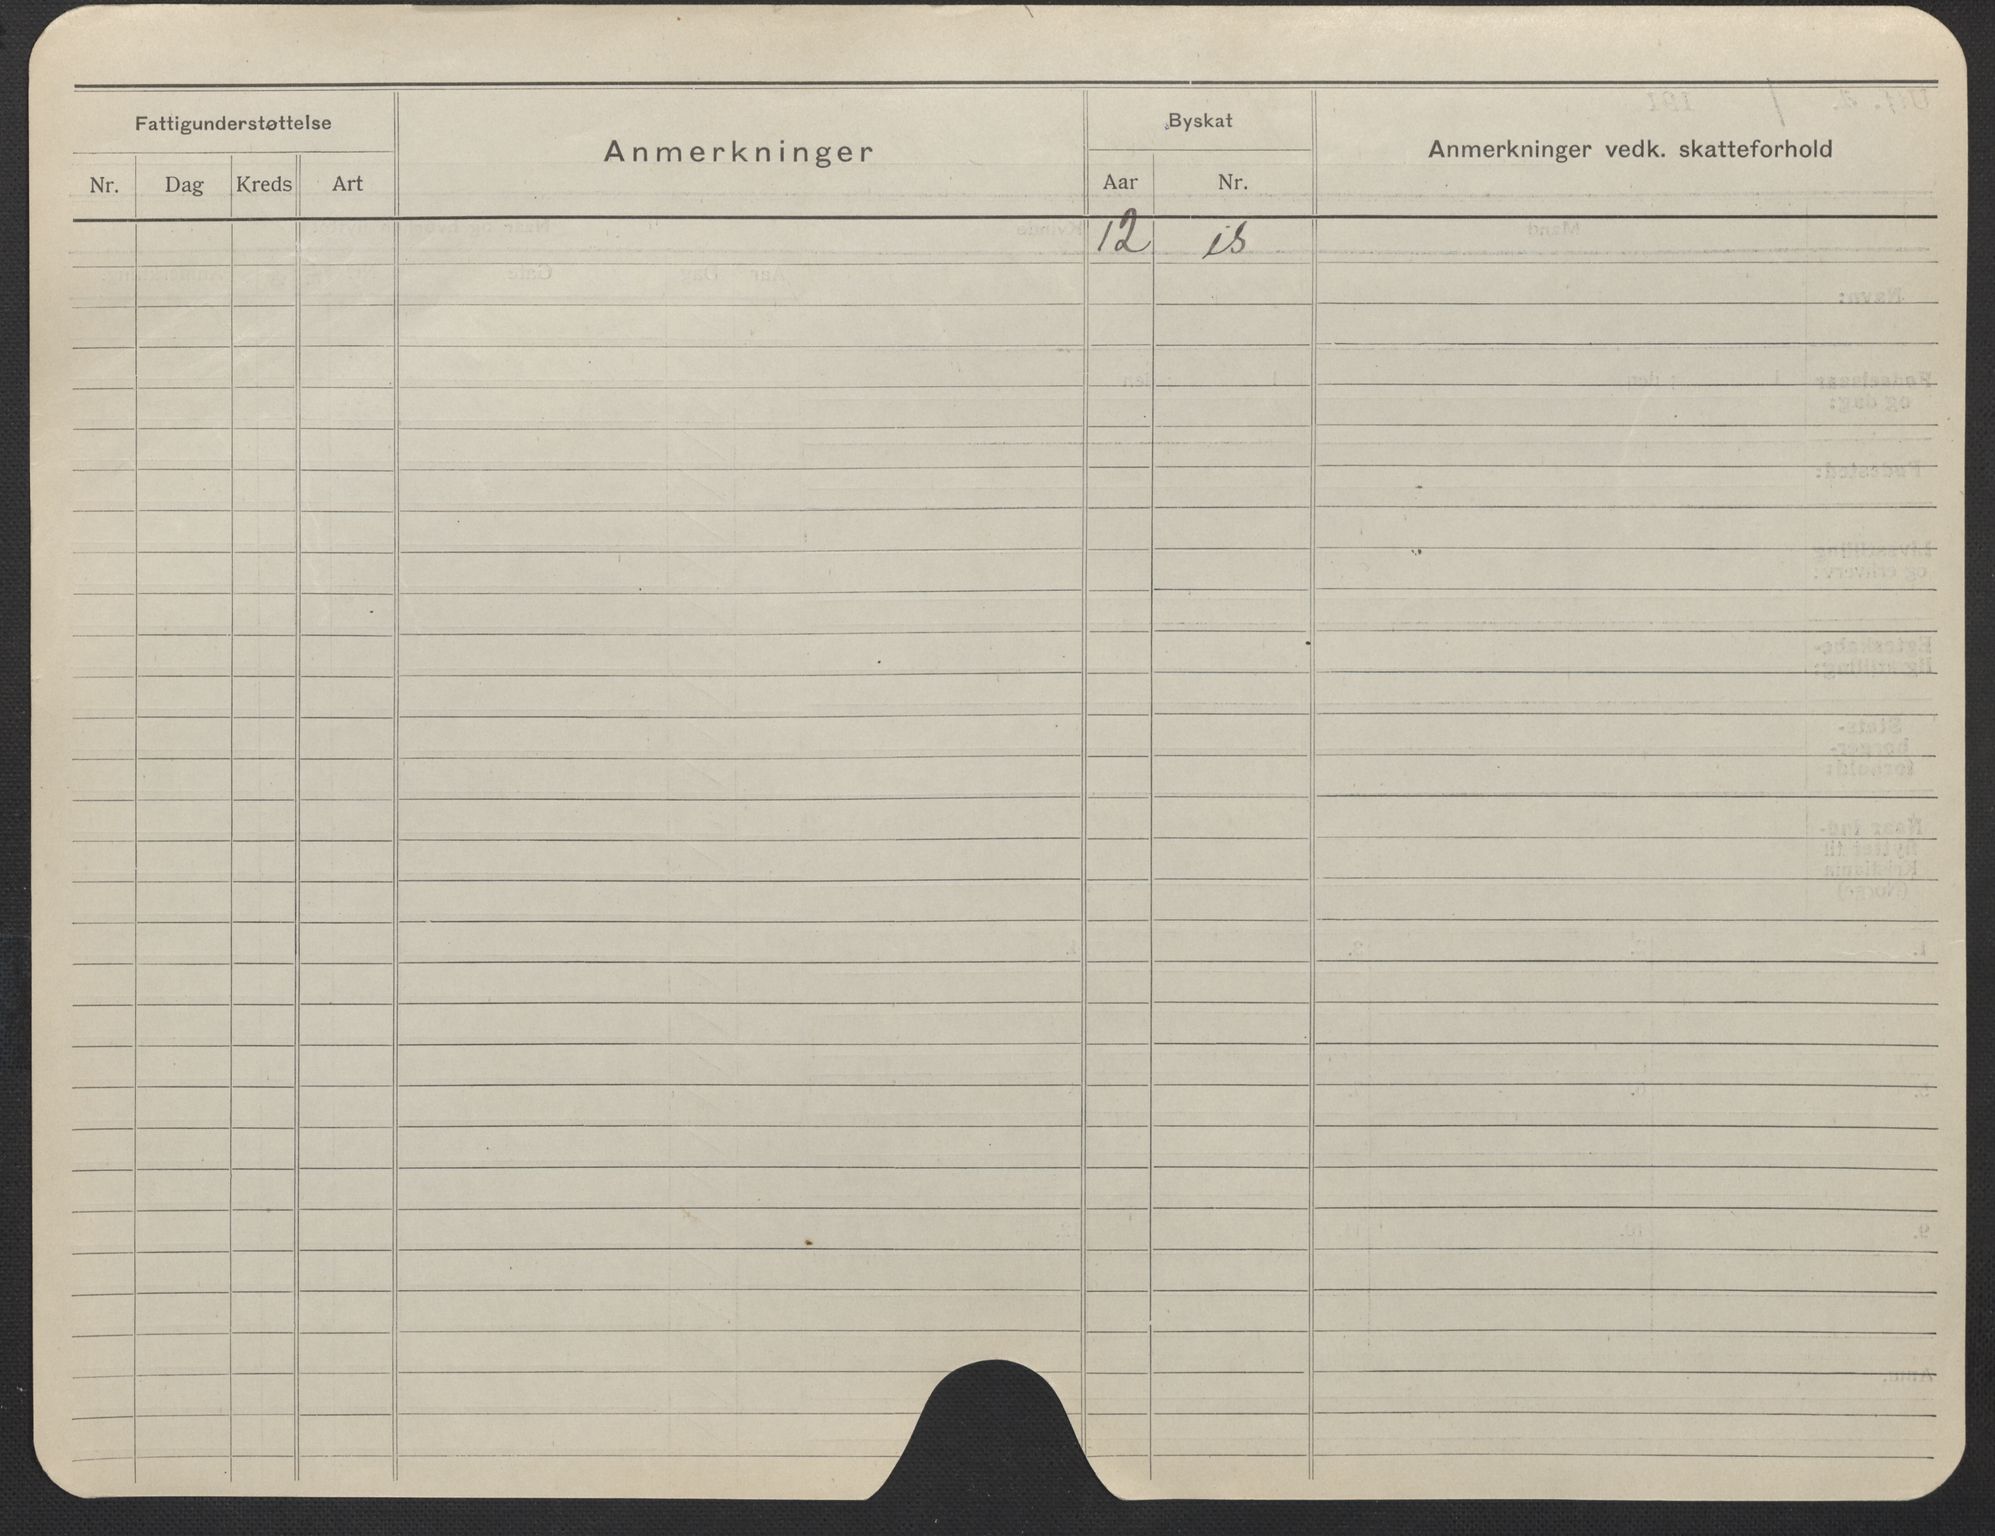 Fattigunderstøttelse
Anmerkninger
Byskat
Anmerkninger vedk. skatteforhold
Nr. Dag Kreds Art
Aar Nr.
12 is